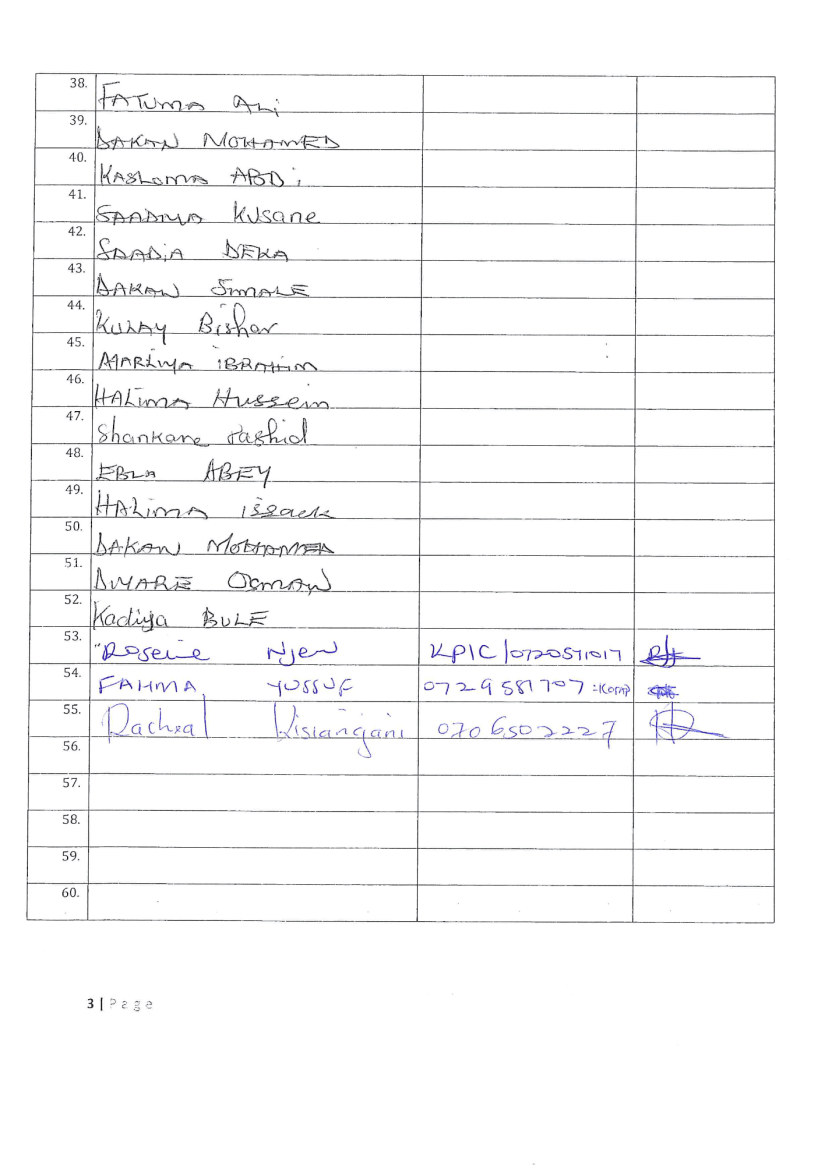 38. FATUMA Ali
39. DAKAN MOHAMED
40. KASLOMA ABDi
41. SAADIYA KUSANE
42. SAADIA DEKA
43. DAKAN SIMALE
44. KULAY Bishar
45. MARIYA iBRAHIM
46. HALIMA Hussein
47. Shankane Rashid
48. EBLA ABEY
49. HALIMA issack
50. DAKAN MOHAMED
51. OSMAN
52. Kadiya BULE
53. Njeru KPIC/0720571017
54. FAHMA YUSSUF 0729581707
55. Rachxal Kisiangani 0706502227
56.
57.
58.
59.
60.
3 | Page